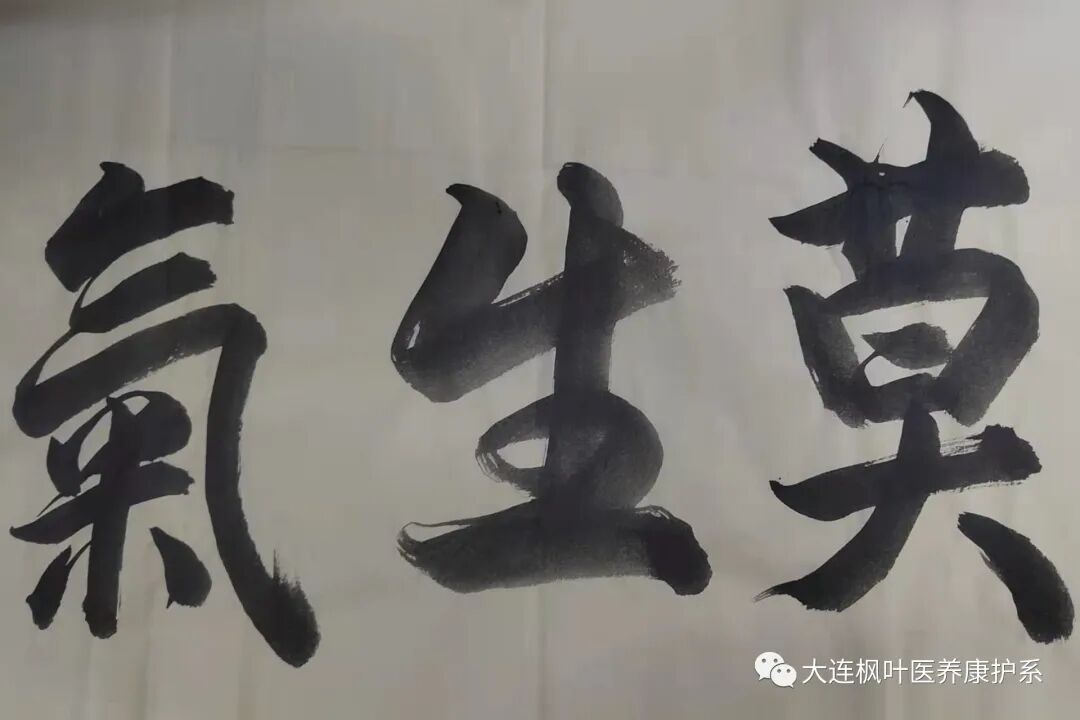 莫生氣
大连枫叶医养康护系